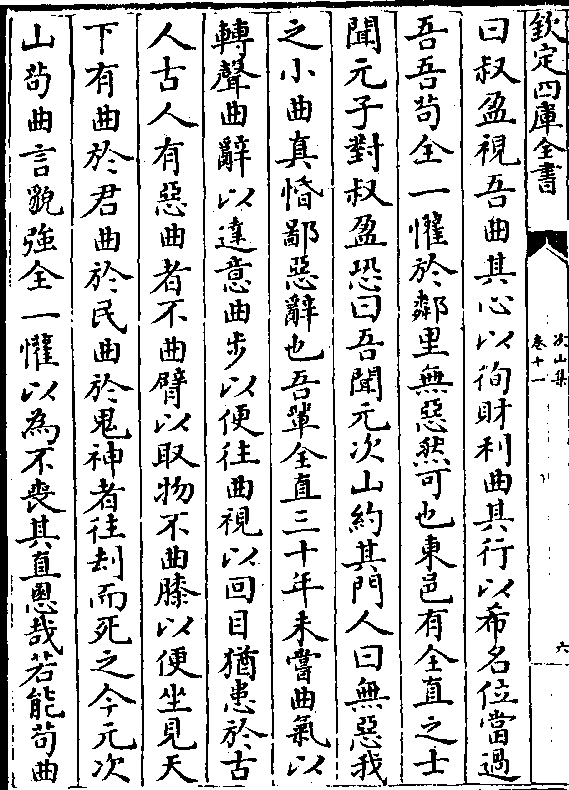 欽定四庫全書
次山集
卷十一
六
曰叔盈視吾曲其心以徇財利曲其行以希名位當過
吾吾苟全一懽於鄰里無惡然可也東邑有全直之士
聞元子對叔盈恐曰吾聞元次山約其門人曰無惡我
之小曲真惛鄙惡辭也吾輩全直三十年未嘗曲氣以
轉聲曲辭以達意曲步以便往曲視以回目猶患於古
人古人有惡曲者不曲臂以取物不曲膝以便坐見天
下有曲於君曲於民曲於鬼神者往刦而死之今元次
山苟曲言貌強全一懽以為不喪其直恩哉若能苟曲